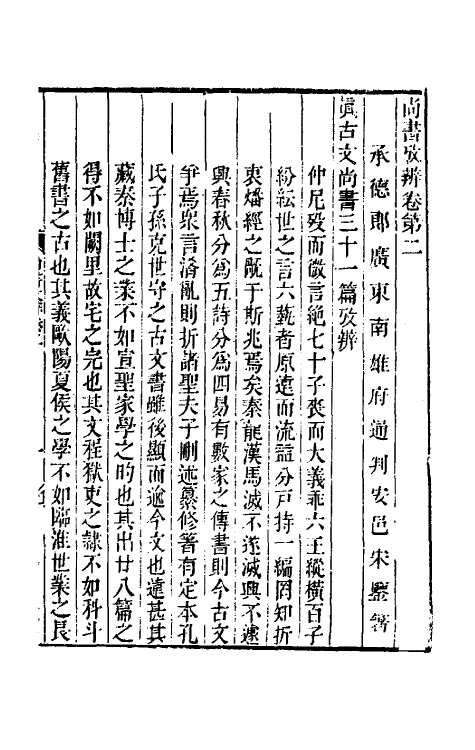 尚書攷辨卷第二
承德郎廣東南雄府通判安邑宋鑒箸
眞古文尚書三十一篇攷辨
仲尼歿而微言絕七十子喪而大義乖六王縱橫百子
紛紜世之言六藝者原遠而流益分戸持一編罔知折
衷燔經之厩于斯兆焉矣秦龍漢馬滅不遂滅興不遽
興春秋分爲五詩分爲四易有數家之傳書則今古文
爭焉衆言淆亂則折諸聖夫子刪述纂修箸有定本孔
氏子孫克世守之古文書雖後顯而逾今文也遠甚其
藏秦博士之業不如宣聖家學之的也其出廿八篇之
得不如闕里故宅之完也其文程獄吏之隸不如科斗
舊書之古也其義歐陽夏侯之學不如臨淮世業之長